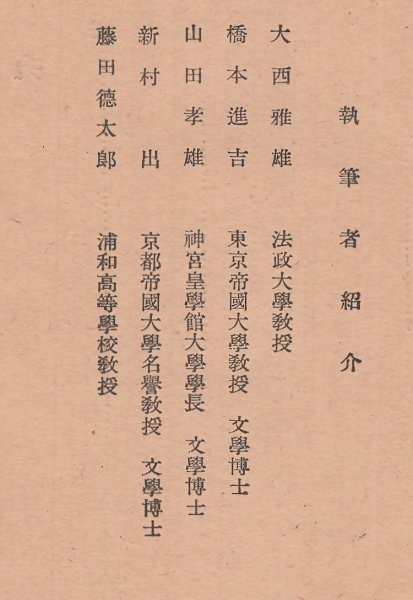 執筆者紹介
大西雅雄 法政大學敎授
橋本進吉 東京帝國大學敎授 文學博士
山田孝雄 神宮皇學館大學學長 文學博士
新村出 京都帝國大學名譽敎授 文學博士
藤田德太郞 浦和高等學校敎授